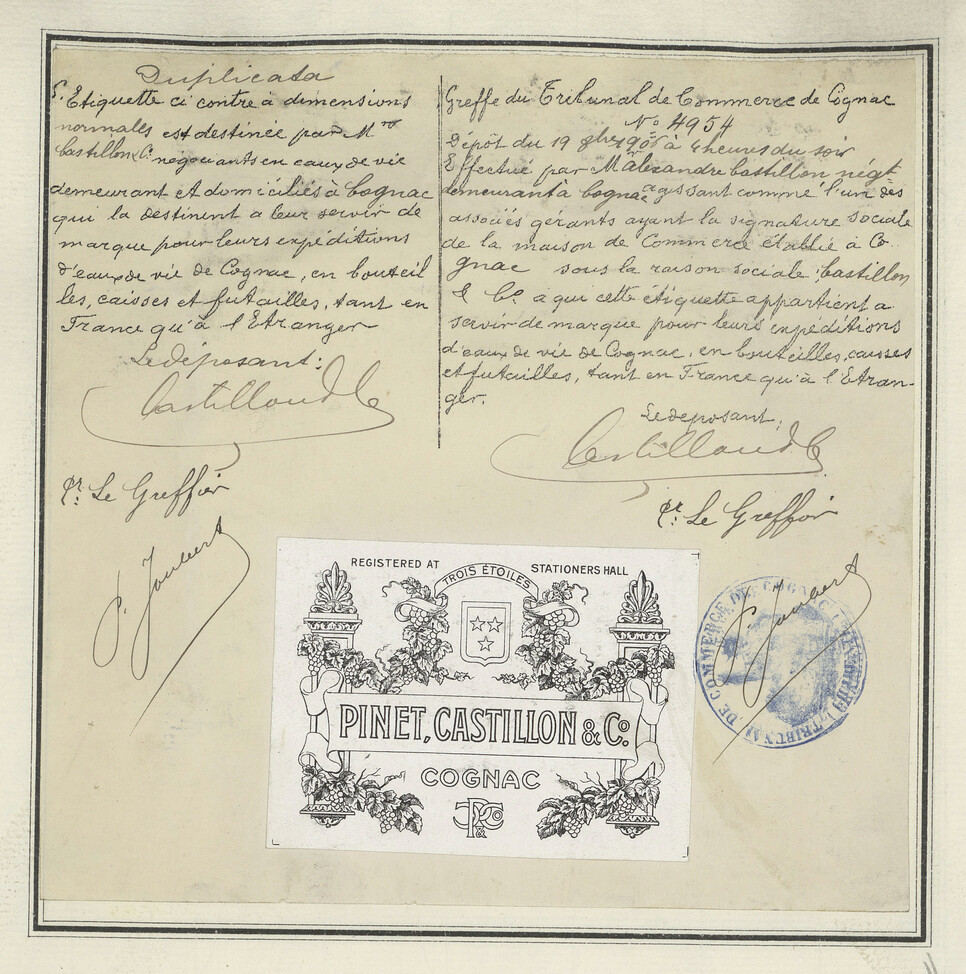 Duplicata
L'Etiquette ci contre à dimensions
normales est destinée par Mrs
Castillon & Co négociants en eaux de vie
demeurant et domiciliés à Cognac
qui la destinent a leur servir de
marque pour leurs expéditions
d'eaux de vie de Cognac, en bouteil
les, caisses et futailles, tant en
France qu'à l'Etranger
Le déposant:
Castillon & Co
pr. Le Greffier
P. Joubert
Greffe du Tribunal de Commerce de Cognac
No 4954
Dépôt du 19 9bre à 4 heures du soir
Effectué par M Alexandre Castillon négt
demeurant à Cognac agissant comme l'un des
associés gérants ayant la signature sociale
de la maison de Commerce établie à Co
gnac sous la raison sociale Castillon
& Co à qui cette étiquette appartient a
servir de marque pour leurs expéditions
d'eaux de vie de Cognac, en bouteilles, caisses
et futailles, tant en France qu'à l'Etran-
ger.
Le deposant:
Castillon & Co
pr. Le Greffier
P. Joubert
REGISTERED AT STATIONERS HALL
TROIS ÉTOILES
PINET, CASTILLON & Co.
COGNAC
TRIBUNAL DE COMMERCE DE COGNAC